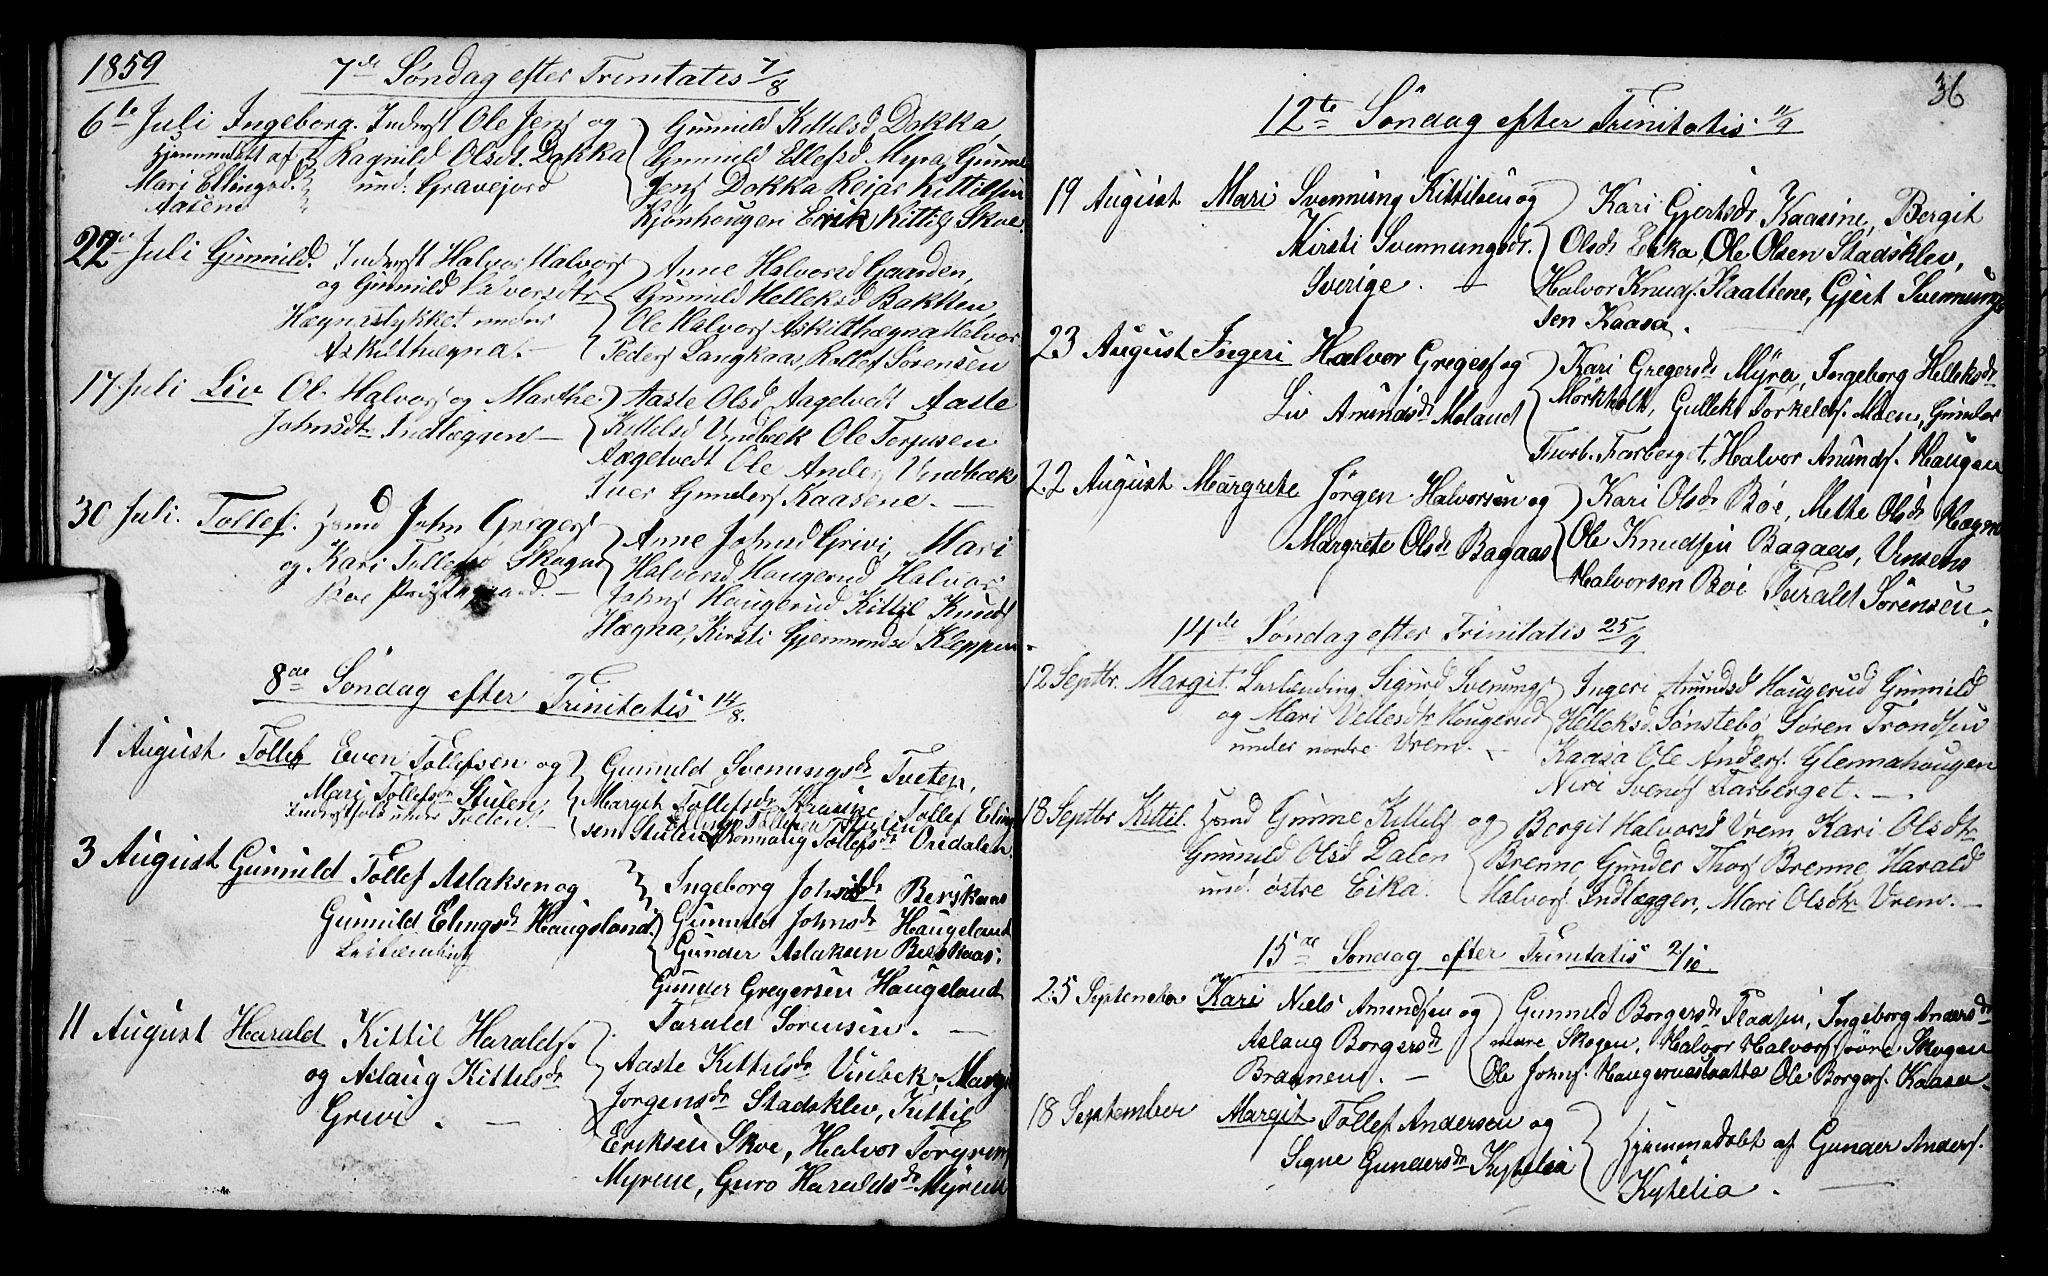 1859
7de Søndag efter Trinitatis 7/8
6te Juli Ingeborg. Inderst Ole Jens og
Hjemmedøbt af Ragnild Olsdt. Dokka
Mari Ellingsd. und. Gravejord
Aasen
Gunild Kittelsd Dokka,
Gunild Ellefsd Myra, Gunne
Jens Dokka Rejar Kittilsen
Kjonhougen Erik Kittils Skoe.
22de Juli Gunild. Inderst Halvor Halvors
og Gunild Halversdtr
Hægnastykket under
Askilthægna. —
Anne Halvorsd Gaarden,
Gunild Helleksd Bakken,
Ole Halvors Askilthægna Halvor
Peders Langkaas, Rollef Sørensen
17 Juli Liv Ol. Halvors og Marthe
Johnsdtr Indlæggen —
Aaste Olsd Aagetvedt Aaste
Kittelsd Vindbæk Ole Terjusen
Aagetvedt Ole Anders Vindbæk
Iver Gunders Kaasene. —
30 Juli. Tollef. Hsmd John Grigers
og Kari Tollefsd Skogen
Boe Præstegaard. —
Anne Johnsd Grivi, Mari
Halvorsd Haugerud Halvor
Johns Haugerud Kittil Knuds
Hægna, Kirsti Gjermundsd Kleppen.
8de Søndag efter Trinitatis 14/8.
1 August Tollef Even Tollefsen og
Mari Tollefsdr Stulen,
Inderstfolk under Tveten. —
Gunuld Svenungsdr Tveten,
Margit Tollefsdr Tollef Eling
sen Stulen Tollefsdr Oredalen.
3 August Gunuld Tollef Aslaksen og
Gunuld Elingsdr Haugsland.
Ingeborg Johnsdr Berskaas
Gunuld Johnsdr Haugeland
Gunder Aslaksen Berskaas,
Gunder Gregersen Haugeland
Tarald Sorensen. —
11 August Harald Kittil Haralds.
og Aslaug Kittelsdr
Grivi. —
Aaste Kittelsdr Vinbek, Margit
Jorgensdr Stadsklev, Kittil
Eriksen Skoe, Halvor Torgrims
Myrene, Guro Haraldsdr Myrene
36
12te Søndag efter Trinitatis. 11/9
19 August Mari Svennung Kittilsen og
Kirsti Svennungsdr.
Sverige. —
Kari Gjertsdr. Kaasine, Bergit
Olsdr Eika, Ole Olsen Stadsklev,
Halvor Knuds. Slaattene, Gjert Svennung
sen Kaasa.
23 August Ingeri Halvor Gregers og
Liv Amundsdr Moland
Kari Gregersdr Myra, Ingeborg Helleksdr
Mørkholt, Gullek Torkelds. Moen, Gunder
Thorb. Farberget, Halvor Anunds. Haugen
22 August Margrete Jørgen Halvorsen og
Margrete Olsdr Bagaas
Kari Olsdr Bøe, Mette Olsdr Hægna
Ole Knudsen Bagaas, Vinsens
Halvorsen Bøe Tarald Sørensen.
14de Søndag efter Trinitatis 25/9
12 Septbr. Margit. Sigurd Svenungs
og Mari Vellesdtr Haugerud
under nordre Vrem. —
Ingeri Amundsd Haugerud Gunnild
Helleksd Tønstebø Søren Trondsen
Kaasa Ole Anders. Glennahougen
Niri Svends Farberget. —
18 Septbr Kittil. Hsmd Gunne Kittels og
Gunuld Olsd Dalen
und. østre Eika.
Bergit Halvorsd Vrem Kari Olsdtr
Brenne, Gunder Thors Brenne, Harald
Halvors. Indlæggen, Mari Olsdtr Vrem. —
15de Søndag efter Trinitatis 2/10
25 September Kari Niels Amundsen og
Aslaug Borgersdr
Braanen. —
Gunnild Borgersdr Plaasen, Ingeborg Andersdr
Skogen, Halvor Halvors. Skogen
Ole Johns. Haugerudslaatta Ole Borgers. Kaasen
18 September Margit Tollef Andersen og
Signe Gundersdr Kyhelia
Hjemmedøbt af Gunder Anders.
Kyhelia. —